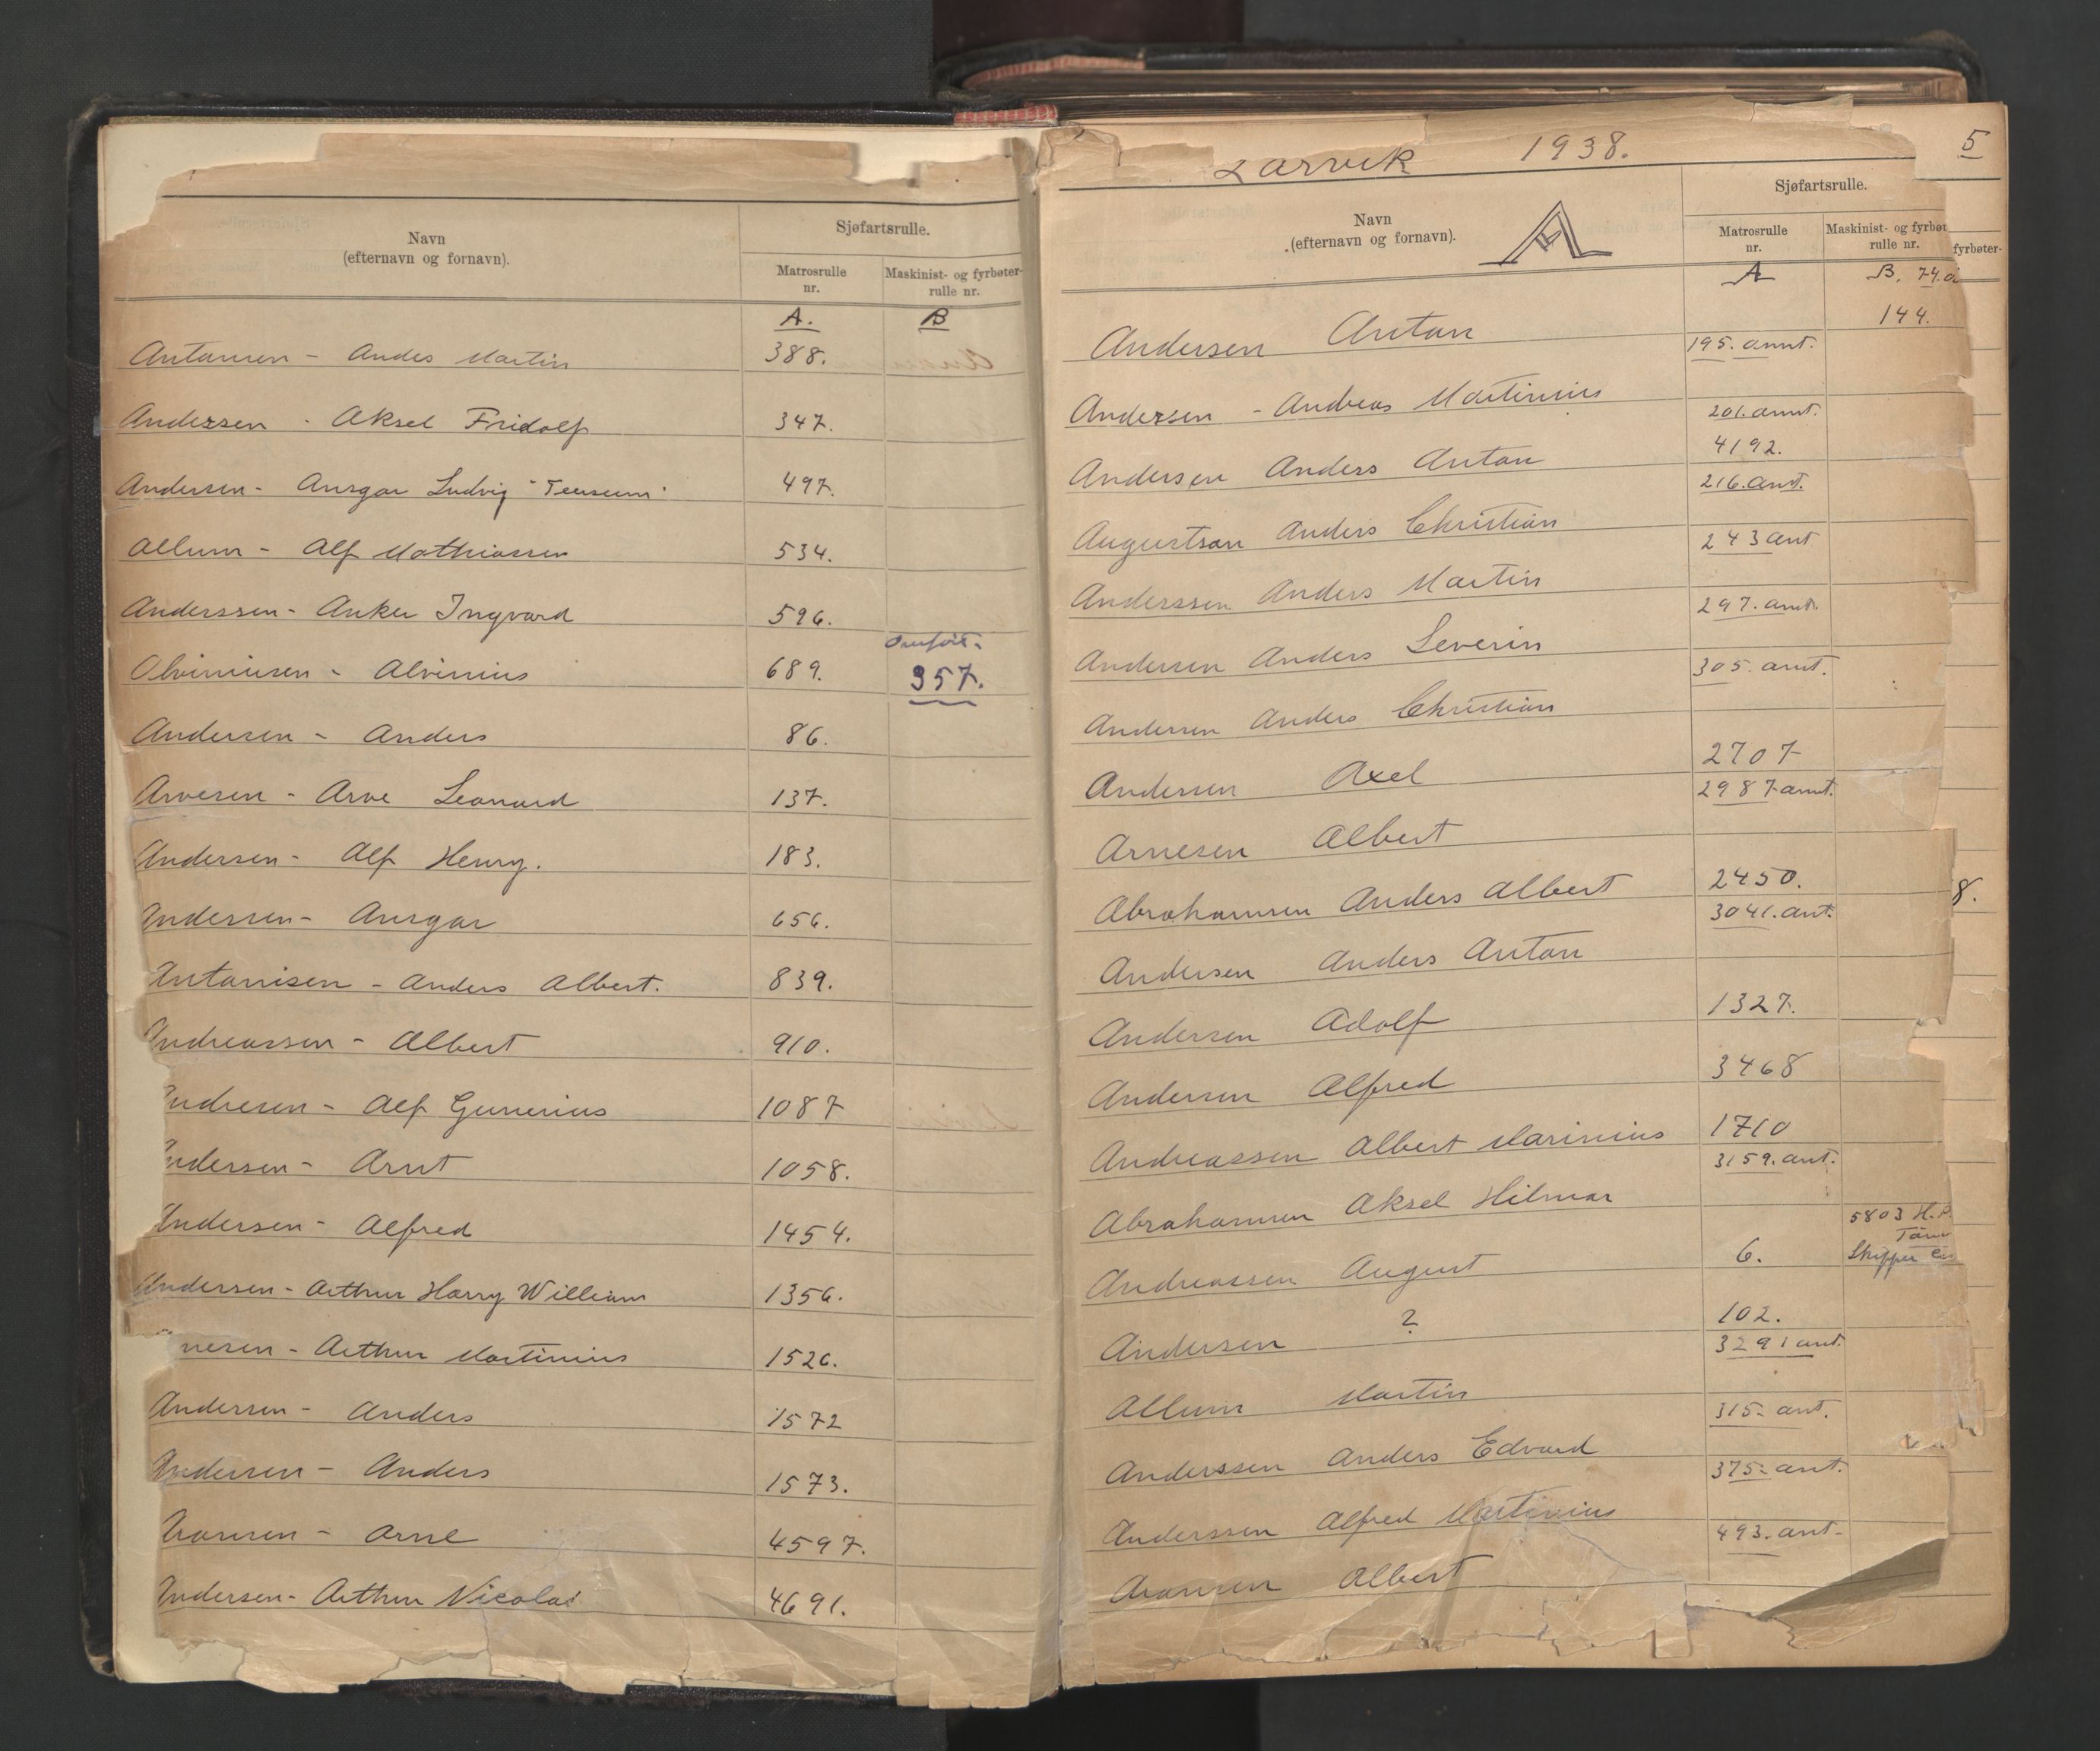 Navn
(efternavn og fornavn).
Sjøfartsrulle.
Matrosrulle
nr.
Maskinist- og fyrbøter-
rulle nr.
A. B
Antonsen - Andes Martin 388.
Anderssen - Aksel Fridolf 347.
Andersen - Ansgar Ludvig 497.
Allum - Alf Mathiassen 534.
Anderssen - Anker Ingvard 596.
Omført.
Alviniusen - Alvinius 689. 357.
Andersen - Anders 86.
Arvesen - Arve Leonard 137.
Andersen - Alf Henry. 183.
Andersen - Ansgar 656.
Antonisen - Anders Albert. 839.
Andreassen - Albert 910.
Andresen - Alf Gunerius 1087
Andersen - Arnt 1058.
Andersen - Alfred 1454.
Andersen - Arthur Harry William 1356.
nesen - Arthur Martinius 1526.
Andersen - Anders 1572
Andersen - Anders 1573.
Aronsen - Arne 4597.
Andersen - Arthur Nicolai 4691.
Larvik 1938.
5
Navn
(efternavn og fornavn).
A
Sjøfartsrulle.
Matrosrulle
nr.
Maskinist- og fyrbøt
rulle nr.
fyrbøter-
A B. 74.
144.
Andersen Anton 195. annt.
Anderssen - Andreas Martinius 201. annt.
4192.
Andersen Anders Anton 216. ant.
Augustson Anders Christian 243 ant
Anderssen Anders Martin 297. annt.
Andersen Anders Severin 305. annt.
Andersen Anders Christian
2707
Andersen Axel 2987 annt.
Arnesen Albert
2450.
Abrahamsen Anders Albert 3041. ant.
8.
Andersen Anders Anton
1327.
Andersen Adolf
3468
Andersen Alfred
1710
Andreassen Albert Marinius 3159. ant.
Abrahamsen Aksel Hilmar
5803 H.
6. Skipper
Andreassen August
102.
Andersen ? 3291 ant.
Allum Martin 315. ant.
Anderssen Anders Edvard 375. ant.
Anderssen Alfred Martinius 493. ant.
Aronsen Albert